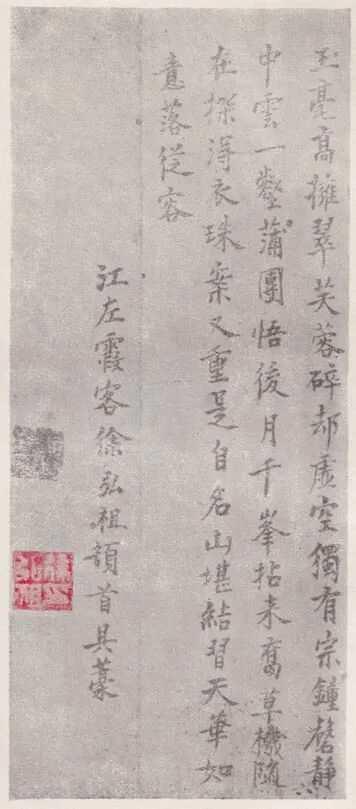 玉毫高擁翠芙蓉碎却虛空獨有宗鐘磬靜
中雲一壑蒲團悟後月千峯拈来舊草機隨
在探得衣珠案又重是自名山堪結習天華如
意落從容
江左霞客徐弘祖頓首具藁